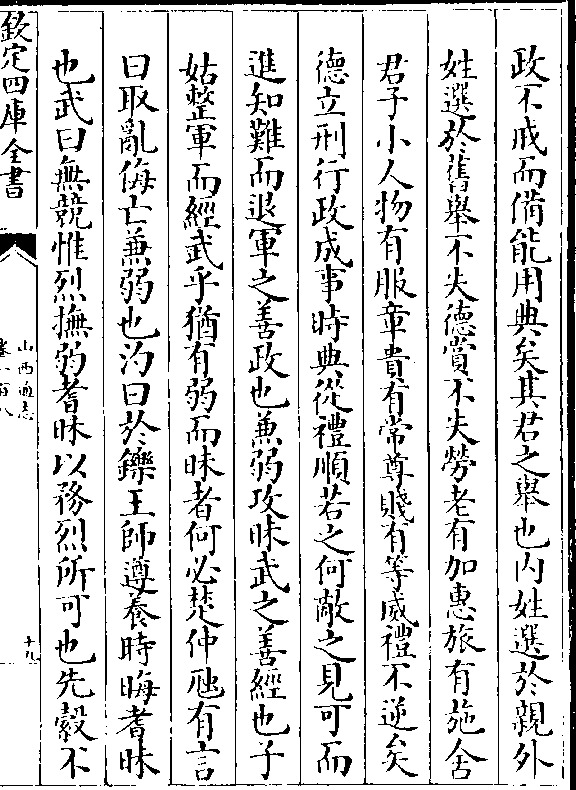 政不戒而備能用典矣其君之舉也内姓選於親外
姓選於舊舉不失德賞不失勞老有加惠旅有施舍
君子小人物有服章貴有常尊賤有等威禮不逆矣
德立刑行政成事時典從禮順若之何敵之見可而
進知難而退軍之善政也兼弱攻昧武之善經也子
姑整軍而經武乎猶有弱而昧者何必楚仲虺有言
曰取亂侮亡兼弱也汋曰於鑠王師遵養時晦耆昧
也武曰無競惟烈撫弱耆昧以務烈所可也先縠不
欽定四庫全書
山西通志
卷一百八
十九